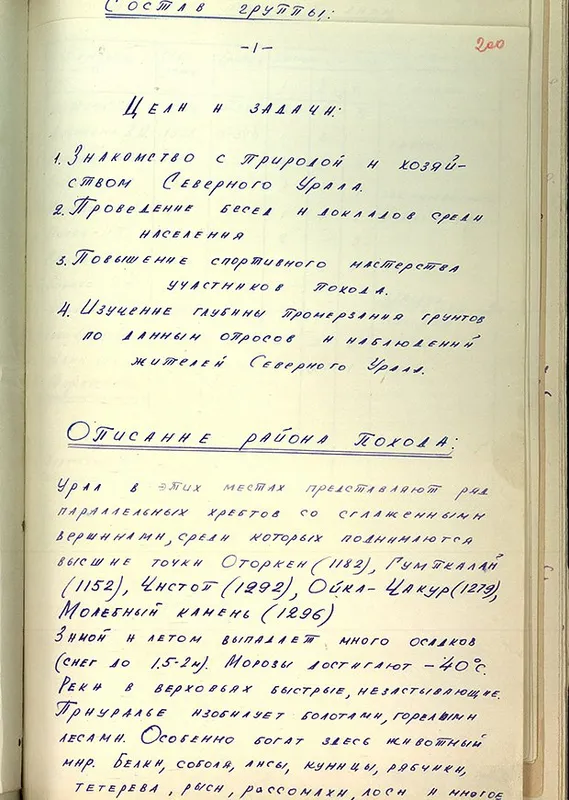 Состав группы:
-1-
200
Цели и задачи:
1. Знакомство с природой и хозяй-
ством Северного Урала.
2. Проведение бесед и докладов среди
населения
3. Повышение спортивного мастерства
участников похода.
4. Изучение глубины промерзания грунтов
по данным опросов и наблюдений
жителей Северного Урала.
Описание района похода:
Урал в этих местах представляют ряд
параллельных хребтов со сглаженными
вершинами, среди которых поднимаются
высшие точки Оторкен (1182), Гумпкапай
(1152), Чистоп (1292), Ойка-Чакур (1279),
Молебный камень (1296)
Зимой и летом выпадает много осадков
(снег до 1.5-2м). Морозы достигают -40°С.
Реки в верховьях быстрые, незастывающие.
Приуралье изобилует болотами, горелыми
лесами. Особенно богат здесь животный
мир. Белки, соболя, лисы, куницы, рябчики,
тетерева, рыси, рассомахи, лоси и многое